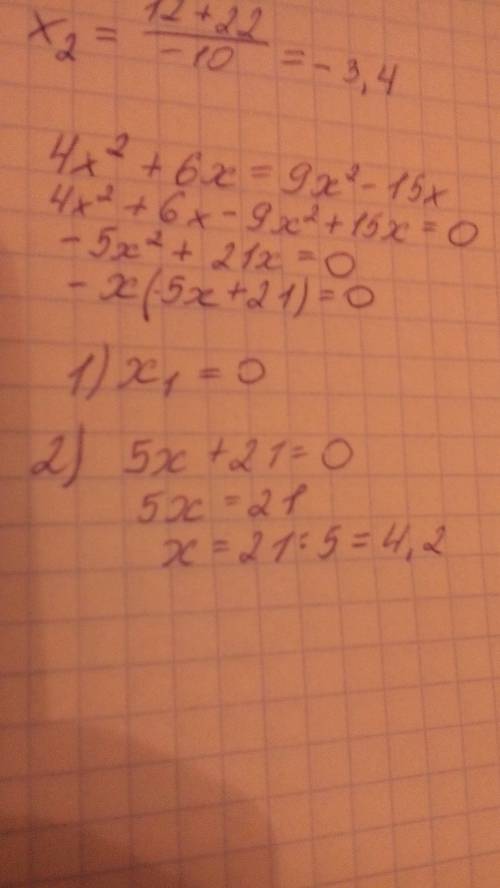 x₂ = (12 + 22)/(-10) = - 3,4
4x² + 6x = 9x² - 15x
4x² + 6x - 9x² + 15x = 0
- 5x² + 21x = 0
- x(-5x + 21) = 0
1) x₁ = 0
2) 5x + 21 = 0
5x = 21
x = 21 : 5 = 4,2